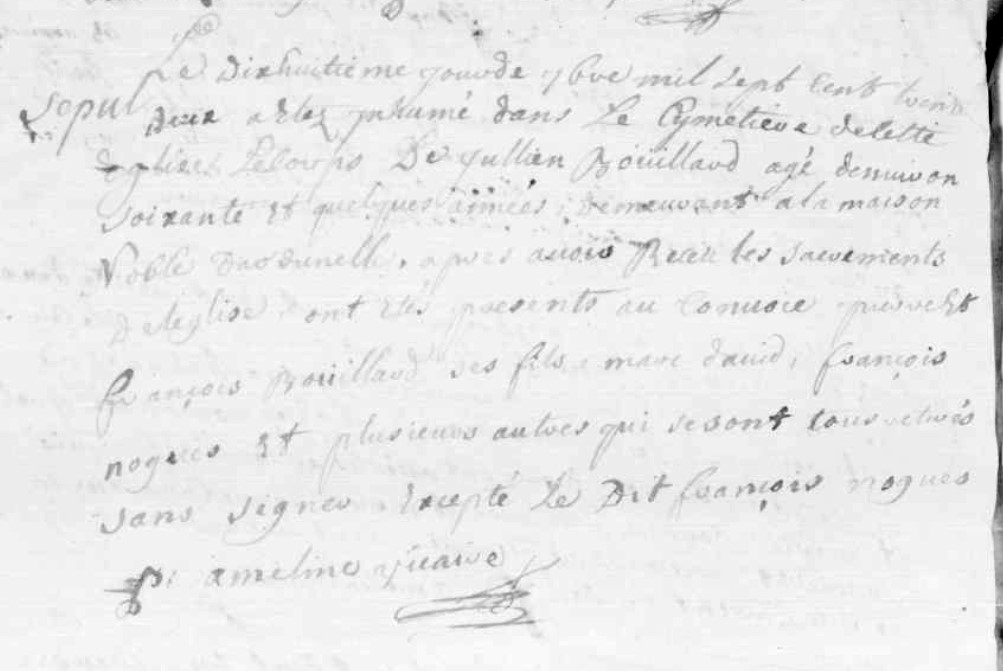 Le dixhuitieme jour de 9bre mil sept cent trente
Sepul deux a Etez inhumé dans Le Cymetiere de cette
Eglise Le corps De Jullien Roüillard agé denuiron
soixante Et quelques années, demeurant a la maison
Noble apres auoir Receu les sacrements
De leglise, ont Etés presents au Conuoie pierre Et
françois Roüillard ses fils, marc dauid, françois
nogues Et plusieurs autres qui se sont tous retirés
sans signer Excepté Le Dit françois nogues
ameline